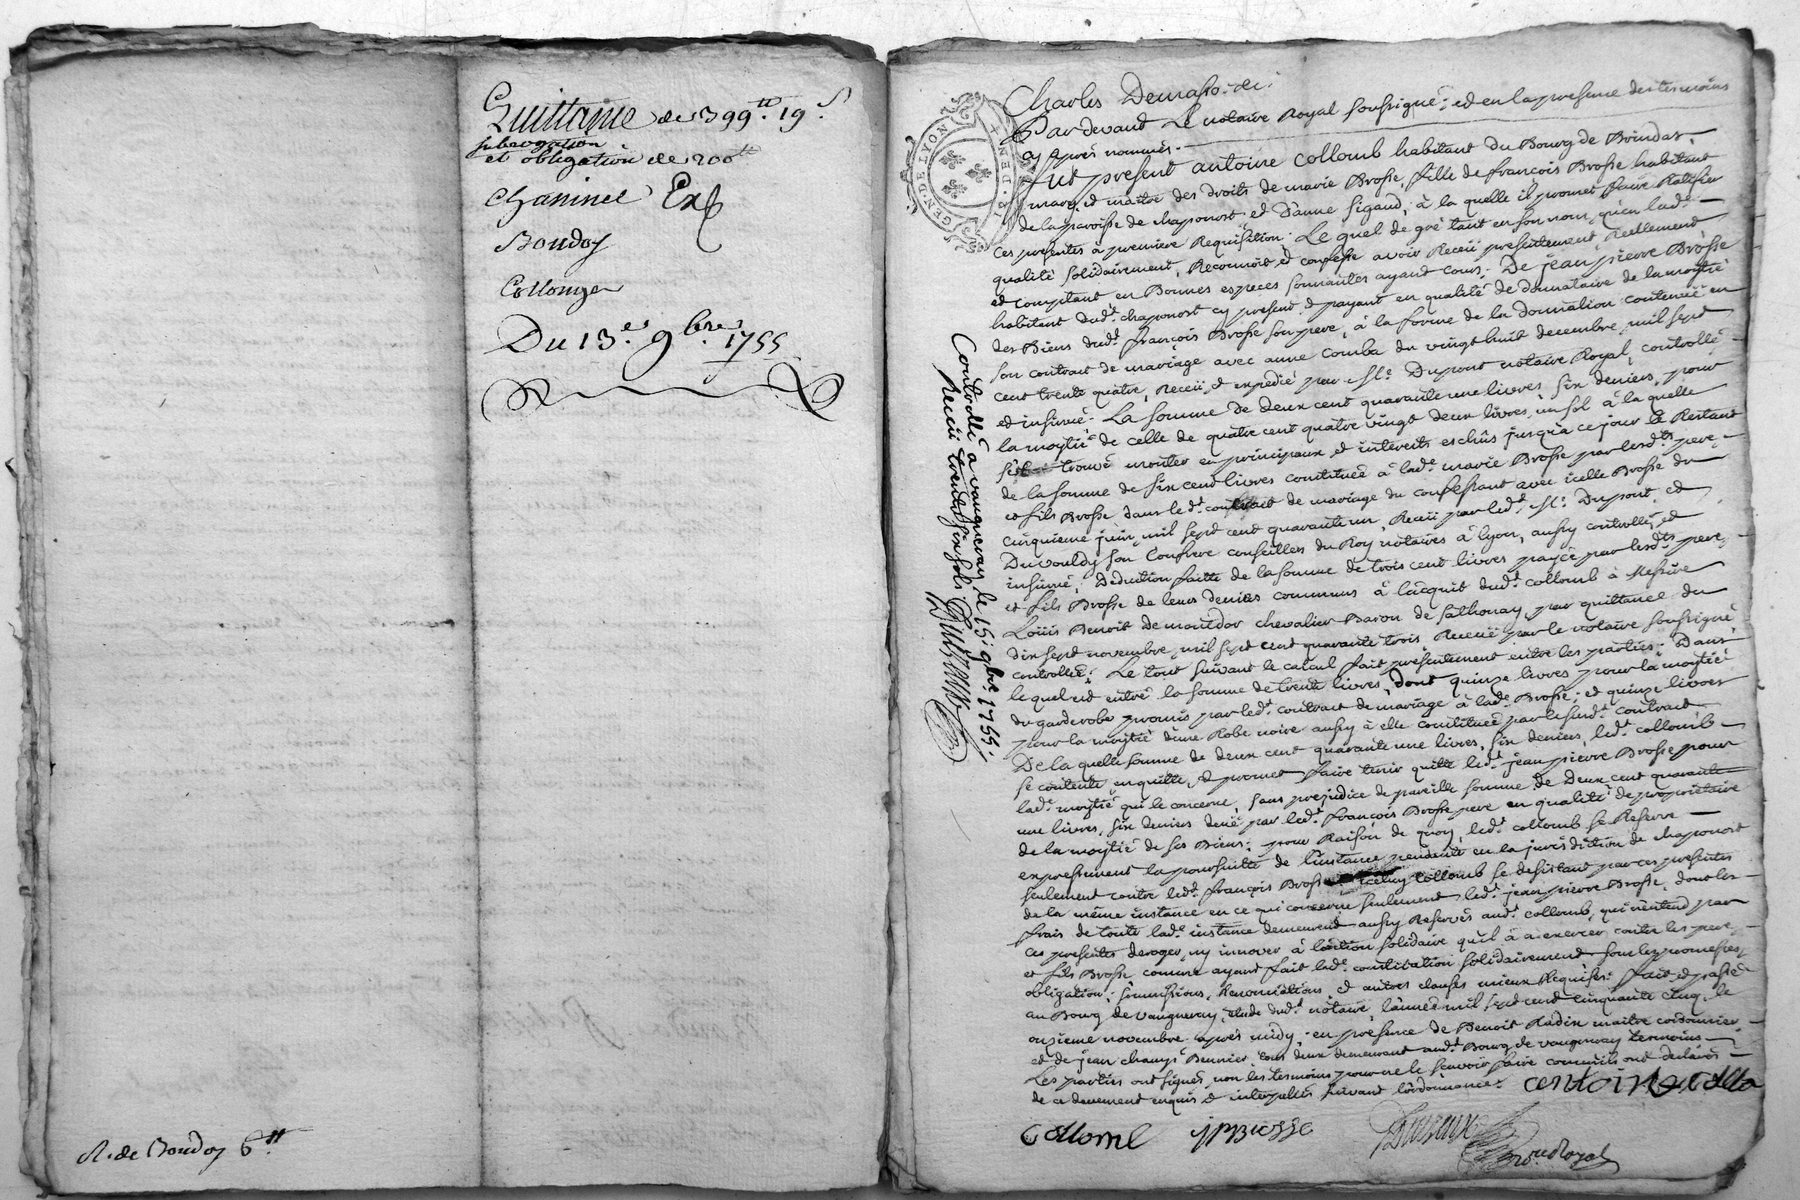 Quittance de 399ᵗᵗ. 19ˢ
subrogation
et obligation de 200ᵗᵗ
Chaninel Exp
Boudoy
Collonge
Du 13.ᵉ 9bre. 1755
R. de Boudoy 6ᵗᵗ
GEN. DE LYON
Charles
Pardevant Le notaire Royal soussigné: et en la presence des tesmoins
cy apres nommés.
fut present antoine Collomb habitant du Bourg de Brindas
mary et maitre des droits de marie Brosse, fille de françois Brosse habitant
de la paroisse de chaponost et d'anne Sigaud; à la quelle il promet faire Ratifier
ces presentes à premiere Requisition. Le quel de gré tant en son nom, qu'en lade.
qualité solidairement, Reconnoit et confesse avoir Receü presentement, Reellement
et comptant en Bonnes especes sonnantes ayant cours: De jean pierre Brosse
habitant dudt. chaponost cy present, & payant en qualité de donnataire de la moytié
des Biens dudt. françois Brosse son pere, à la forme de la donnation contenüe en
son contract de mariage avec anne Comba du vingt huit decembre, mil sept
cent trente quatre, Receü & expedié par Me. Dupont notaire Royal, controllé
et insinué: La somme de deux cent quarante une livres, six deniers, pour
la moytié de celle de quatre cent quatre vingt deux livres, un sol à la quelle
s'est trouvé monter en principaux et interets eschûs jusqu'a ce jour le Restant
de la somme de six cent livres constituée à lade. marie Brosse par lesdts. pere
et fils Brosse dans ledt. contrait de mariage du confessant avec icelle Brosse du
cinquieme juin, mil sept cent quarante un, Receü par ledt. Me. Dupont et
Duvouldy son Confrere conseillers du Roy notaires à Lyon, aussy controllé, et
insinué; Deduction faitte de la somme de trois cent livres payée par lesdts. pere
et fils Brosse de leurs deniers communs à l'acquit dudt. collomb à Messire
Loüis Benoit De montdor chevalier Baron de sathonay par quittance du
dix sept novembre, mil sept cent quarante trois Receüe par le notaire soussigné
controllée: Le tout suivant le calcul fait presentement entre les parties: Dans
le quel est entré la somme de trente livres, dont quinze livres pour la moytié
du garderobe promis par ledt. contract de mariage à lade. Brosse; et quinze livres
pour la moytié d'une Robe noire aussy à elle constituée par le susdt. contract
De la quelle somme de deux cent quarante une livres, six deniers, ledt. collomb
se contente, en quitte, & promet faire tenir quitte ledt. jean pierre Brosse pour
lade. moytié qui le concerne, sans prejudice de pareille somme de Deux cent quarante
une livres, six deniers deüe par ledt. françois Brosse pere en qualité de proprietaire
de la moytié de ses Biens; pour Raison de quoy, ledt. collomb se Reserve
expressement la poursuitte de l'instance pendente en la jurisdiction de chaponost
seulement contre ledt. françois Brosse iceluy Collomb se desistant par ces presentes
de la même instance en ce qui concerne seulement ledt. jean pierre Brosse, dont les
frais de toute lade. instance demeurent aussy Reservés audt. collomb, qui n'entend par
ces presentes deroger, ny innover à l'action solidaire qu'il à a exercer contre les pere
et fils Brosse comme ayant fait lade. constitution solidairement sous les promesses,
obligation, soumissions, Renonciations, & autres clauses mieux Requises: fait et passé
au Bourg de Vaugneray, étude dudt. notaire, l'année mil sept cent cinquante cinq, le
onzieme novembre apres midy; en presence de Benoit Radix maitre cordonnier,
et de jean champt. Beunier tous deux demeurant audt. Bourg de vaugneray tesmoins
Les parties ont signés, non les tesmoins pour ne le sçavoir faire comme ils ont declarés
de ce deuement enquis & interpellés suivant l'ordonnance: antoine Collo
Collomb jpBrosse
Nore. Royal
Controllé à vaugneray le 15. 9bre. 1755.
Receü trente six sols.